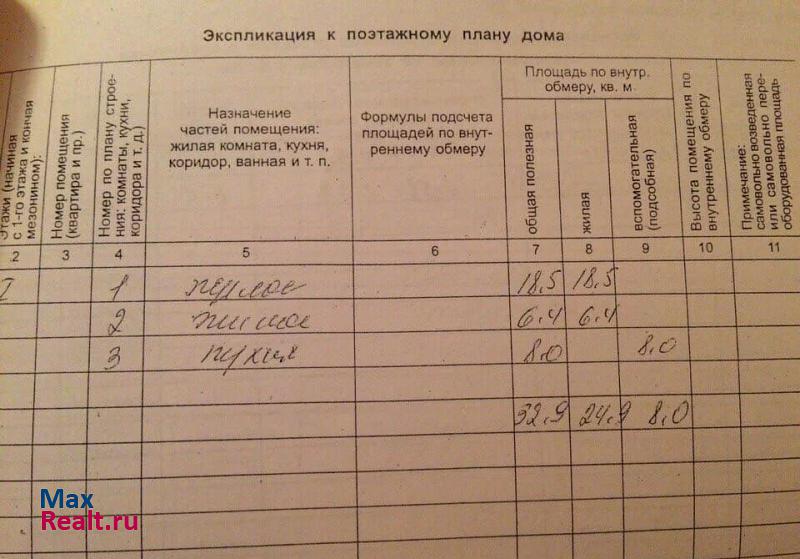 Экспликация к поэтажному плану дома
Этажи (начиная
с 1-го этажа и кончая
мезонином):
Номер помещения
(квартира и пр.)
Номер по плану строе-
ния: комнаты, кухни,
коридора и т. д.)
Назначение
частей помещения:
жилая комната, кухня,
коридор, ванная и т. п.
Формулы подсчета
площадей по внут-
реннему обмеру
Площадь по внутр.
обмеру, кв. м
общая полезная
жилая
вспомогательная
(подсобная)
Высота помещения по
внутреннему обмеру
Примечание:
самовольно возведенная
или самовольно пере-
оборудованная площадь
2 3 4 5 6 7 8 9 10 11
I 1 жилое 18,5 18,5
2 жилое 6,4 6,4
3 кухня 8,0 8,0
32,9 24,9 8,0
Max
Realt.ru